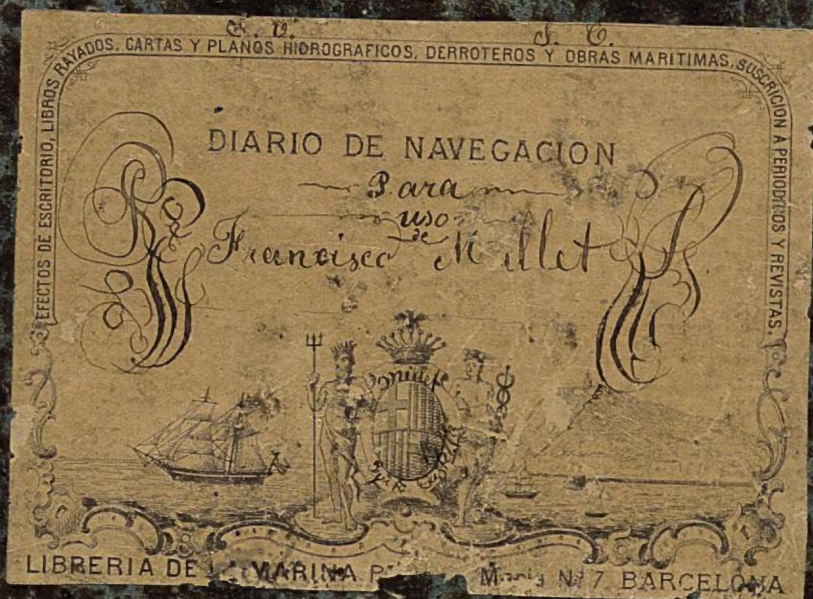 EFECTOS DE ESCRITORIO, LIBROS RAYADOS, CARTAS Y PLANOS HIDROGRAFICOS, DERROTEROS Y OBRAS MARITIMAS, SUSCRICION A PERIODICOS Y REVISTAS.
DIARIO DE NAVEGACION
Para
uso
de
Francisco Millet
LIBRERIA DE MARINA Nº 7 BARCELONA